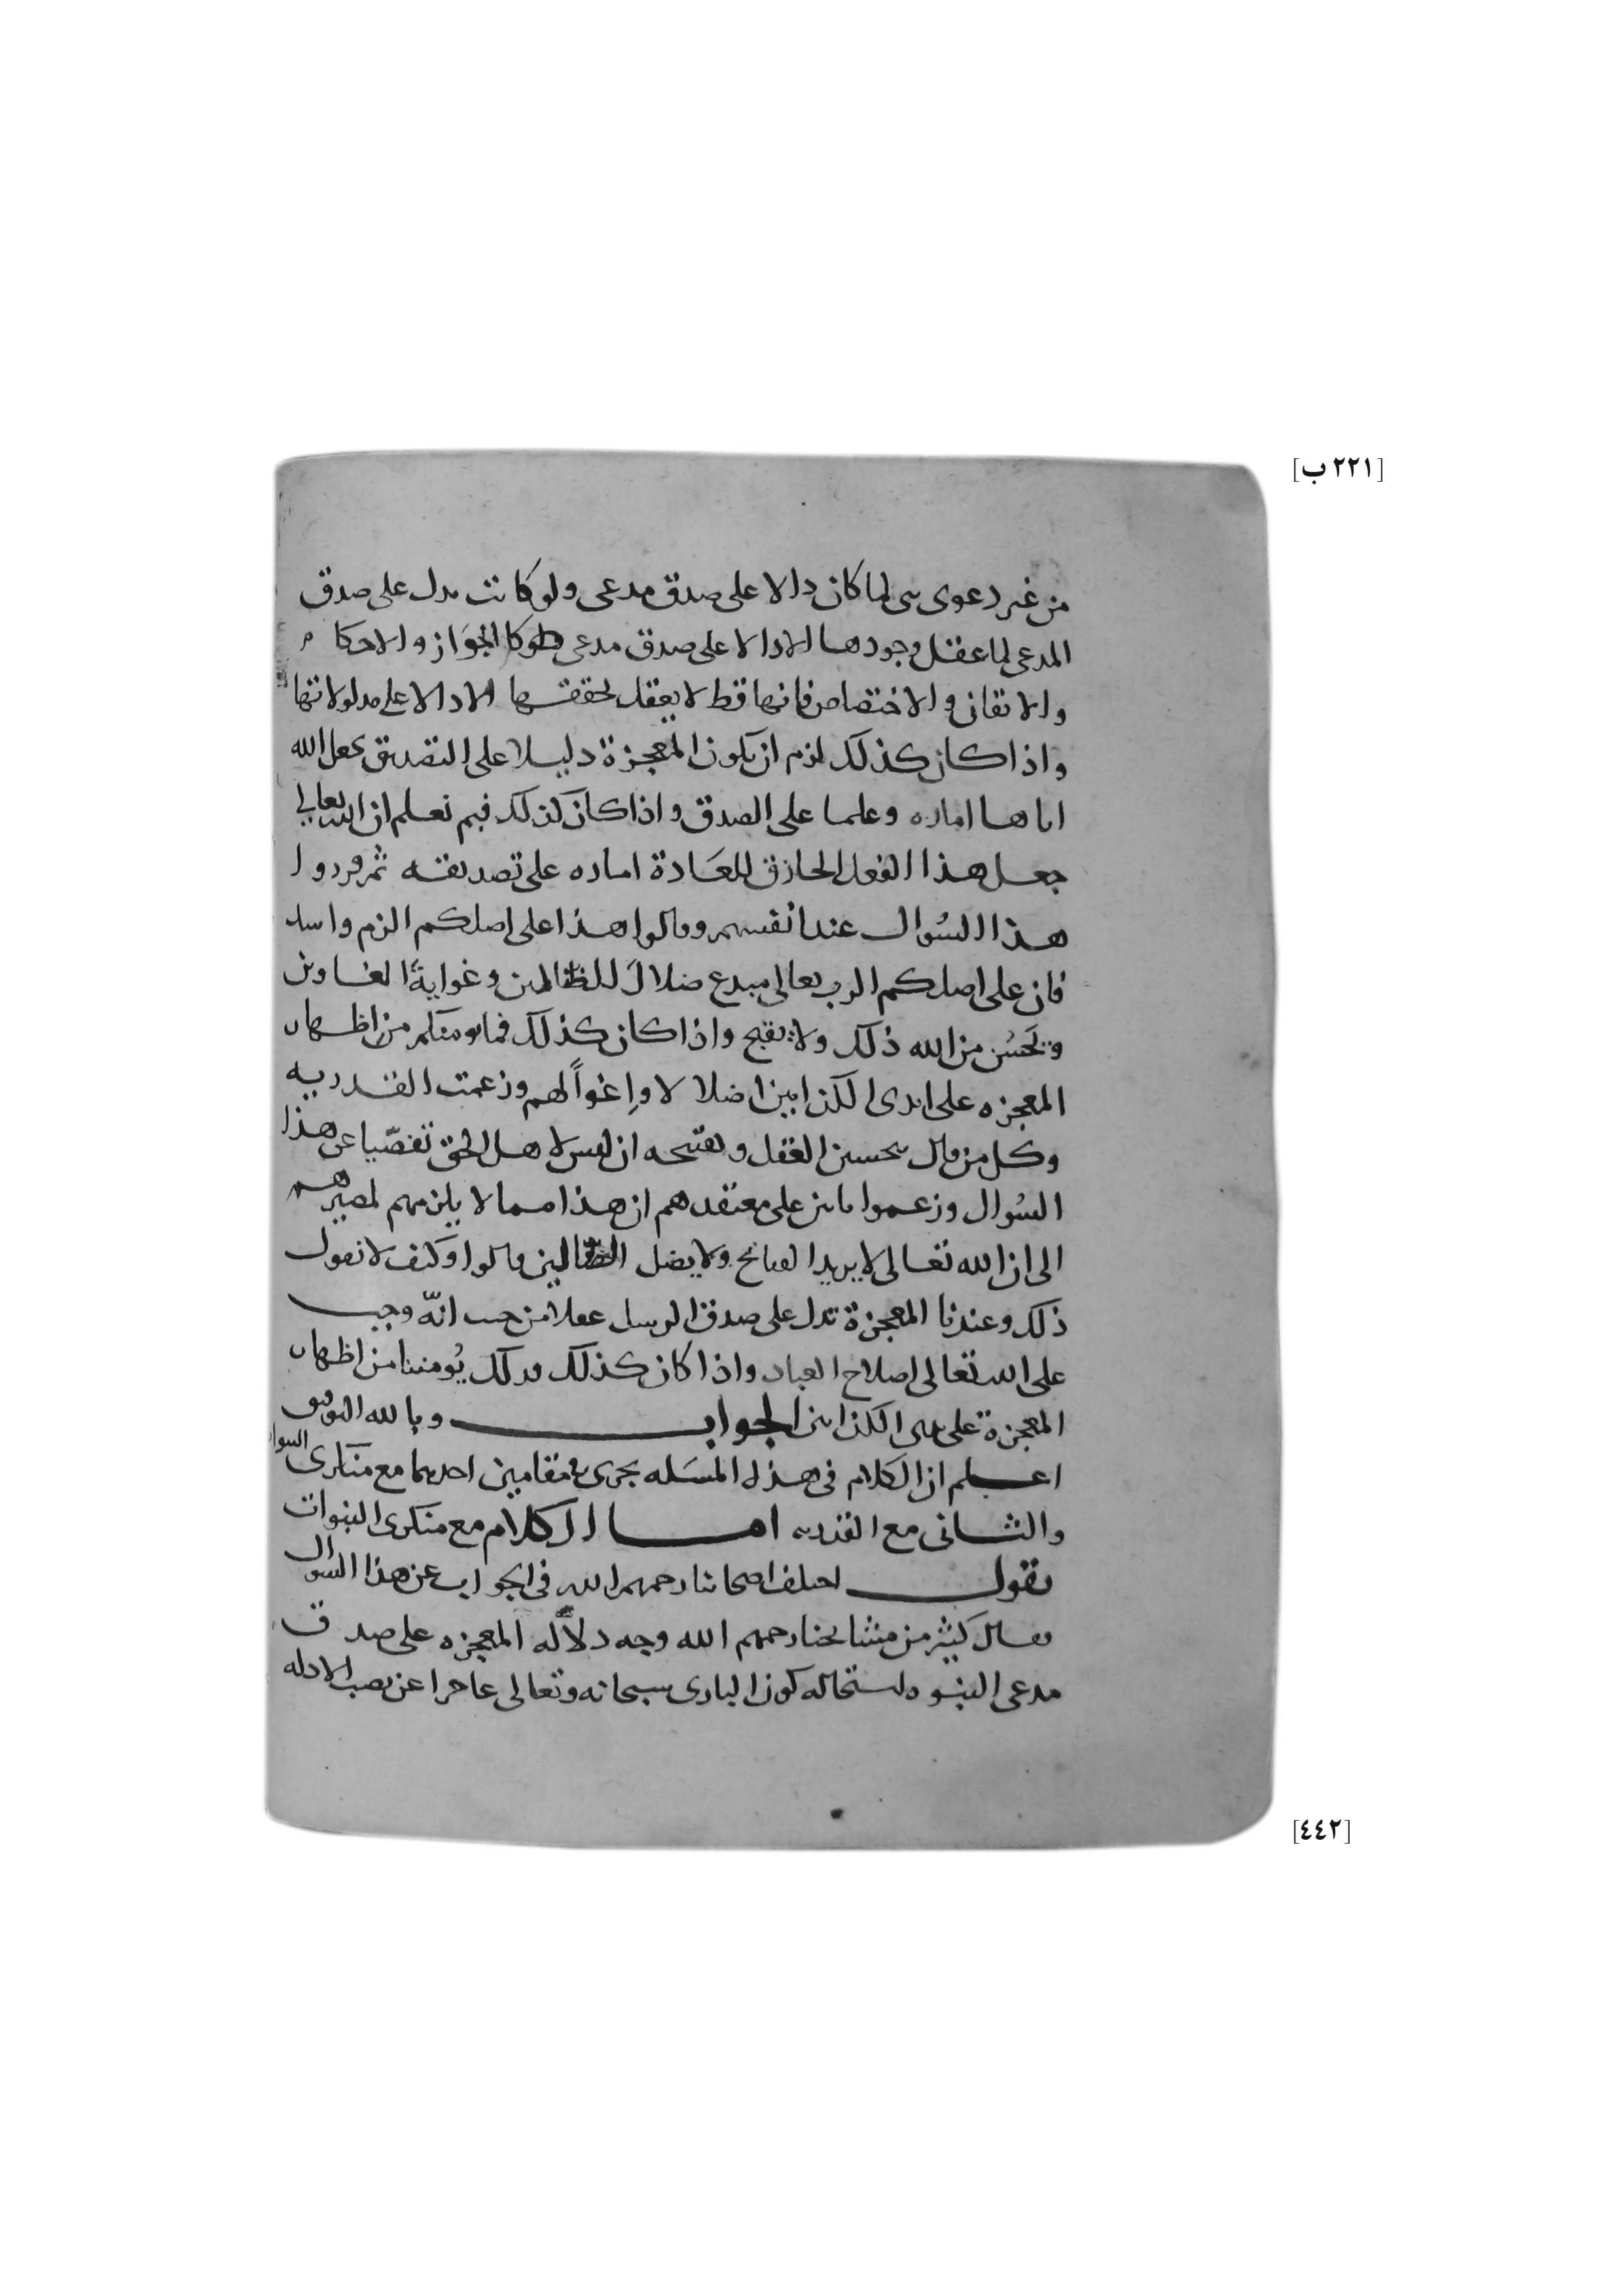 [٢٢١ ب]
من غير دعوى نبي لما كان دالا على صدق مدعى ولو كانت تدل على صدق
المدعى لما عقل وجودها الا دالا على صدق مدعى كالجواز والاحكام
والاتقان والاختصاص فانها قط لا يعقل تحققها الا دالا على مدلولاتها
واذا كان كذلك لزم ان يكون المعجزة دليلا على التصديق بجعل الله
اياها اماره وعلما على الصدق واذا كان كذلك فبم نعلم ان الله تعالى
جعل هذا الفعل الخارق للعادة اماره على تصديقه ثم قرروا
هذا السؤال عند انفسهم وقالوا هذا على اصلكم الزم واسد
فان على اصلكم الرب تعالى مبدع ضلال للظالمين وغواية الغاوين
ويحسن من الله ذلك ولا يقبح واذا كان كذلك فما يومنكم من اظهار
المعجزه على ايدي الكذابين اضلالا واغوأ لهم وزعمت القدريه
وكل من قال بتحسين العقل وتقبيحه ان ليس لاهل الحق تفصّيا عن هذا
السؤال وزعموا بانن على معتقدهم ان هذا مما لا يلزمهم لمصيرهم
الى ان الله تعالى لا يريد القبائح ولا يضل الظالمين قالوا وكيف لا نقول
ذلك وعندنا المعجزة تدل على صدق الرسل عقلا من حيث انّه وجب
على الله تعالى اصلاح العباد واذا كان كذلك فذلك يُومننا من اظهار
المعجزة على يدى الكذابين الجواب وبالله التوفيق
اعلم ان الكلام في هذه المسَله يجري في مقامين احدهما مع منكرى السوال
والثاني مع القدريه اما الكلام مع منكرى النبوات
نقول اختلف اصحابنا رحمهم الله في الجواب عن هذا السوال
فقال كثير من مشايخنا رحمهم الله وجه دلاله المعجزه على صدق
مدعى النبوه استحاله كون البارى سبحانه وتعالى عاجزا عن نصب الادله
[٤٤٢]